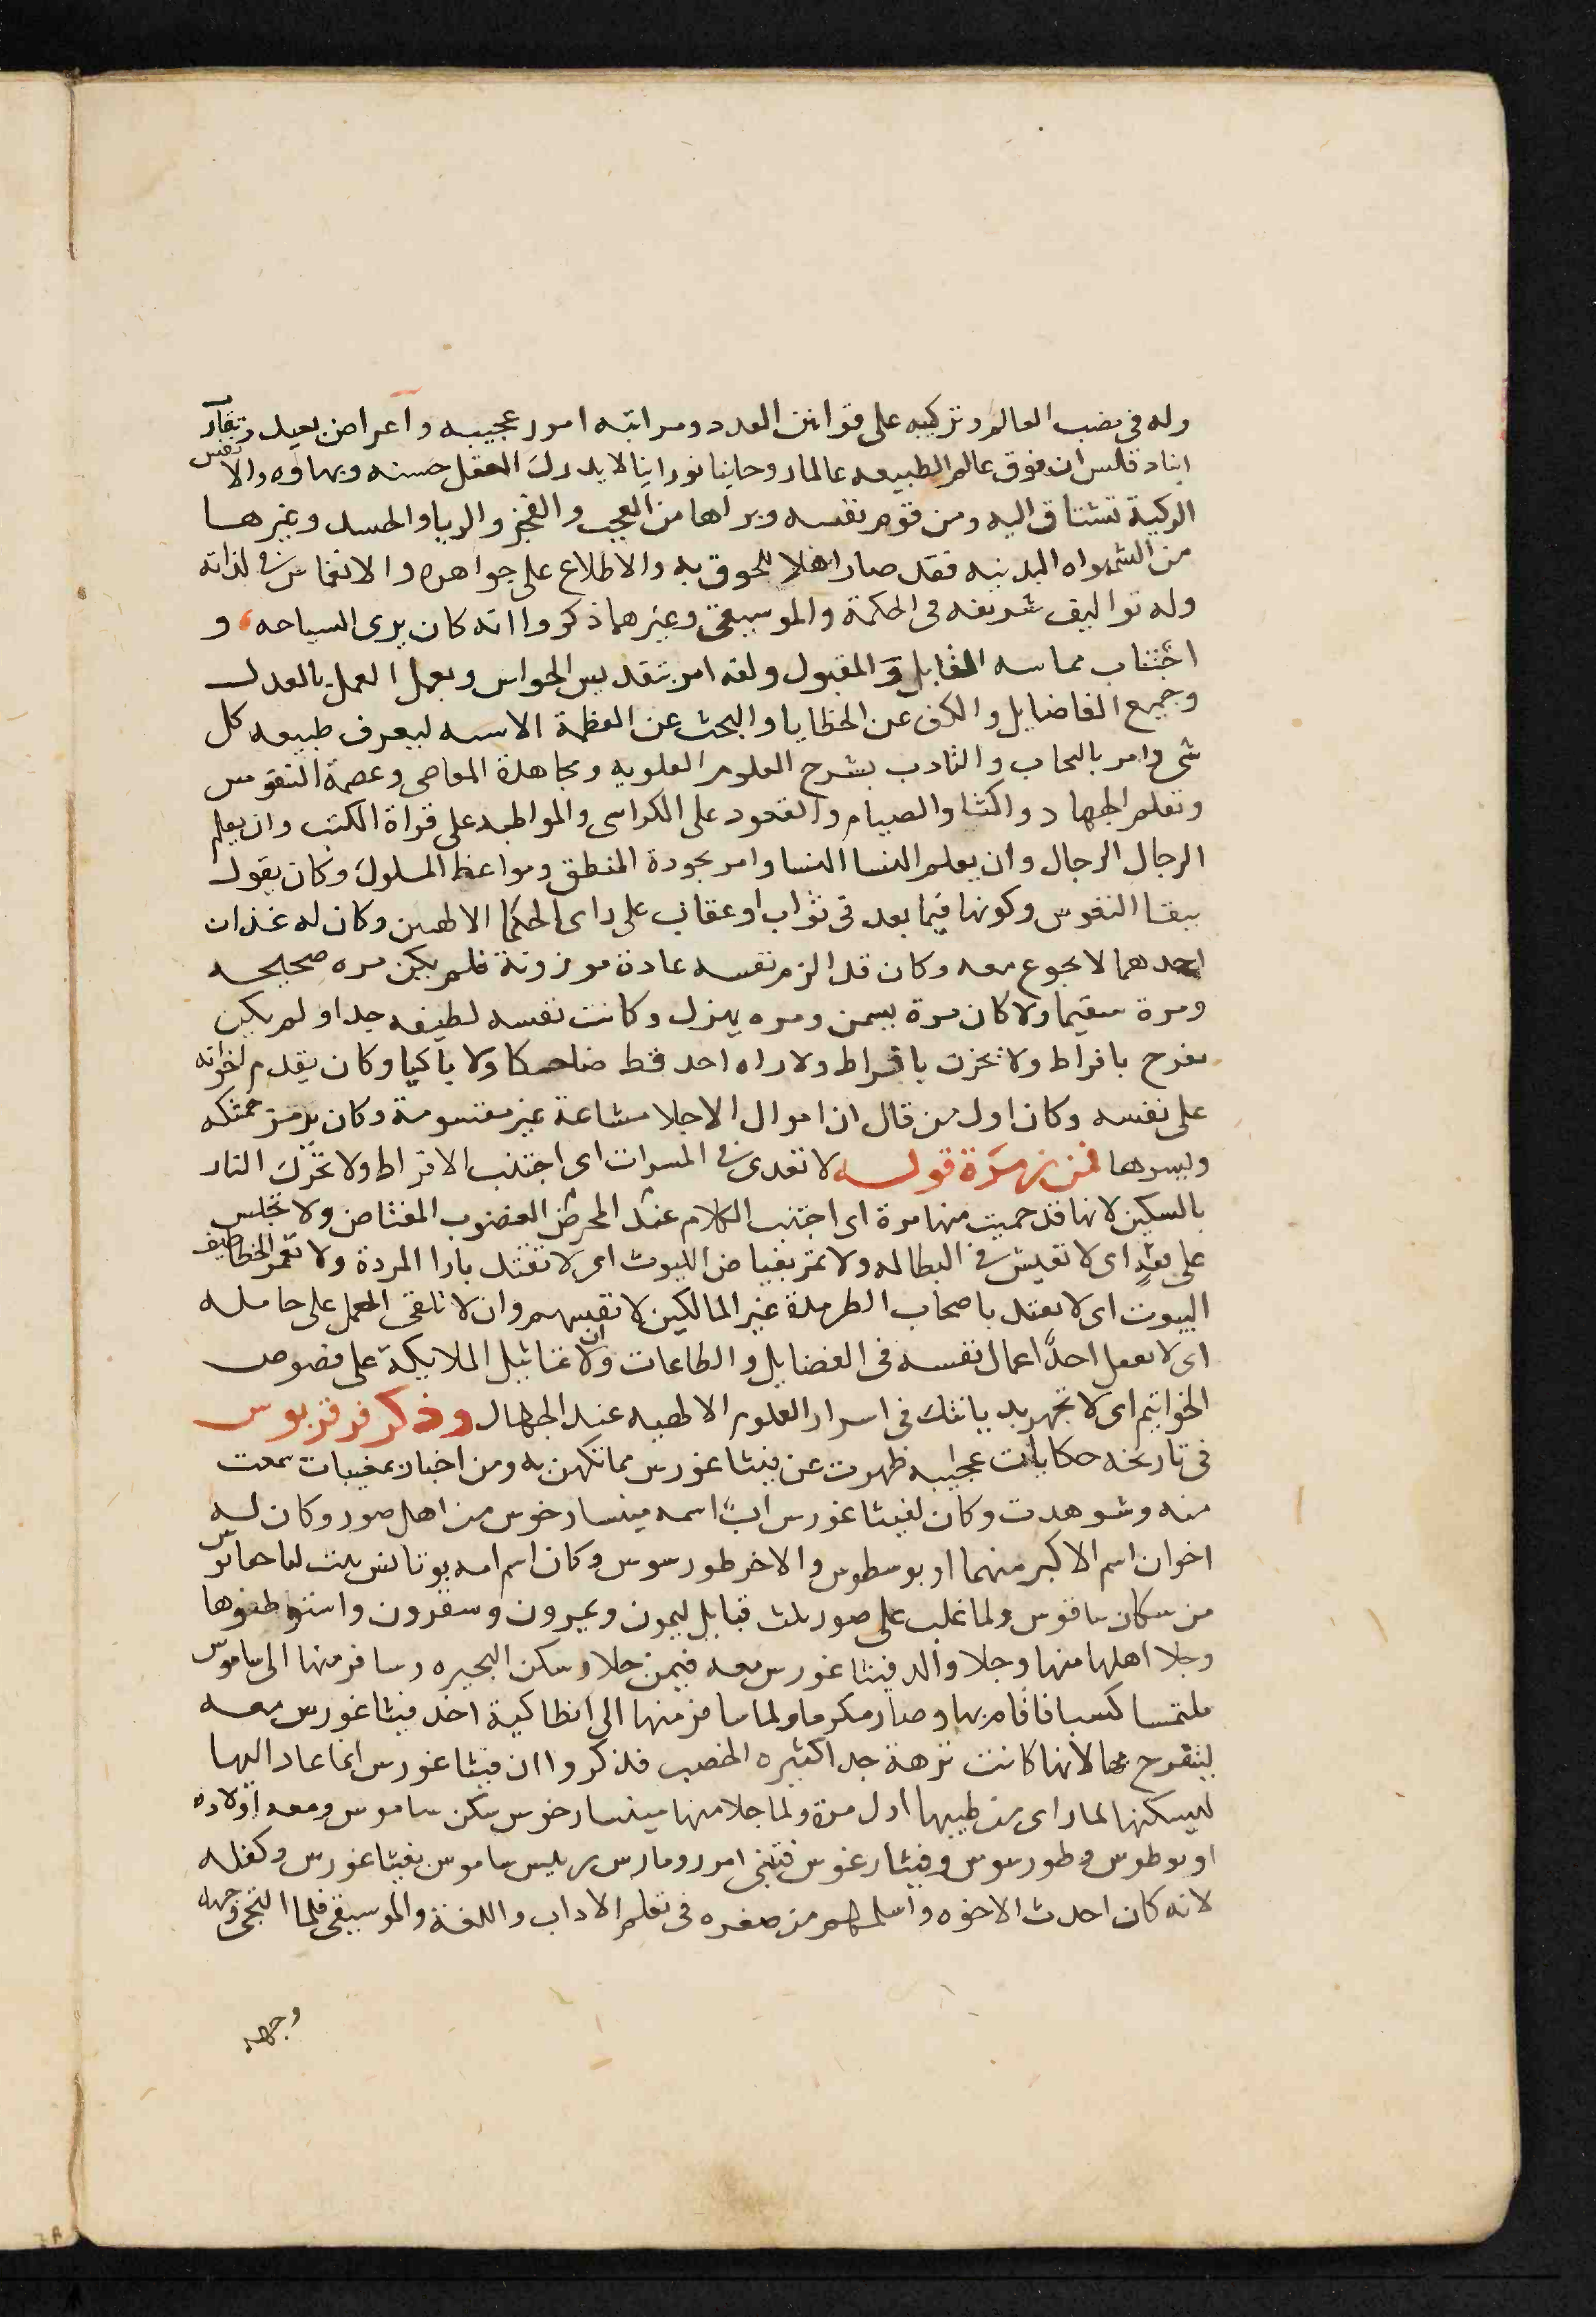 وله فى نضب العالم وتركيبه على قوانين العدد ومراتبه امور عجيبه واعراض بعيده وتقارر
ابنادقلس ان فوق عالم الطبيعه عالما روحانيا نورانيا لا يدرك العقل حسنه وبهاوه والانفس
الزكية تشتاق اليه ومن قوم نفسه وبراها من العجب والفجز والريا والحسد وغيرها
من الشهواه البدنيه فقد صار اهلا للحوق به والاطلاع على جواهره والانغماس فى لذاته
وله تواليف شريفه فى الحكمة والموسيقى وغيرهما ذكروا انه كان يرى السياحه، و
اجتناب مماسه القابل و المقبول ولقه امر بتقديس الحواس وبعمل العمل بالعدل
وجميع الفاضايل والكف عن الخطايا والبحث عن العظمة الاسيه ليعرف طبيعه كل
شى وامر بالتحاب والتادب بشرح العلوم العلويه ومجاهدة المعاصى وعصمة النفوس
وتعلم الجهاد واكثا والصيام والقعود على الكراسى والمواظبه على قراة الكتب وان يعلم
الرجال الرجال وان يعلم النسا النسا وامر بجودة المنطق ومواعظ الملوك وكان يقول
ببقا النفوس وكونها فيما بعد فى ثواب او عقاب على راى الحكما الالهيين وكان له غذان
احدهما لا يجوع معه وكان قد الزم نفسه عادة موزونة فلم يكن مره صحيحه
ومرة سقيما ولا كان مرة يسمن ومره يهزل وكانت نفسه لطيفه جدا ولم يكن
يفرح بافراط ولا يحزن بافراط ولا راه احد قط ضاحكا ولا باكيا وكان يقدم اخوانه
على نفسه وكان اول من قال ان اموال الاجلا مشاعة غير مقسومة وكان يرمز حمتكه
ويسرها فمن زمرة قوله لا تعدى فى المسرات اى اجتنب الافراط ولا تحرك النار
بالسكين لانها قد حميت منها مرة اى اجتنب الكلام عند المحرض الغضوب المغتاض ولا تجلس
على قفيز اى لا تعيش فى البطاله ولا تمر بغياض الليوث اى لا تقتد بارا المردة ولا تعمر الخطاطيف
البيوت اى لا تعتد باصحاب الطرمذة غير المالكين لا نفسهم وان لا تلقى الحمل على حامله
اى لا يغفل احدًا اعمال نفسه فى الفضايل والطاعات وان لا تماثيل الملايكة على فصوص
الخواتيم اى لا تجهر بديانتك فى اسرار العلوم الالهيه عند الجهال وذكر فرفريوس
فى تاريخه حكايات عجايبه ظهرت عن فيثاغورس مما تكهن به ومن اخبار بمغيبات سمعت
منه وشوهدت وكان لفيثاغورس ابً اسمه مينسارخوس من اهل صور وكان له
اخوان اسم الاكبر منهما اوبوسطوس والاخر طورسوس وكان اسم امه بوثايس بنت لما حمايوس
من سكان ساقوس ولما غلب على صور ثلث قبايل ليمون ويميرون وسقرون واستوطنوها
وجلا اهلها منها وجلا والد فيثاغورس معه فيمن جلا وسكن البحيره وسافر منها الى ساموس
ملتمسا كسبا فاقام بها وصار مكرما ولما سافر منها الى انطاكية اخذ فيثاغورس معه
ليتفرح بها لانها كانت نزهة جدا كثيره الخصب فذكروا ان فيثاغورس انما عاد اليها
لليسكنها لما راى من طيبها اول مرة ولما جلا منها مينسارخوس سكن ساموس ومعه اولاده
اوبوطوس وطورسوس وفيثارغوس فتبنى امرروماوس ريليس ساموس بفيثاغورس وكفله
لانه كان احدث الاخوه واسلمهم من صغره فى تعلم الاداب واللغة والموسيقى فلما التجى وجهه
وجهه